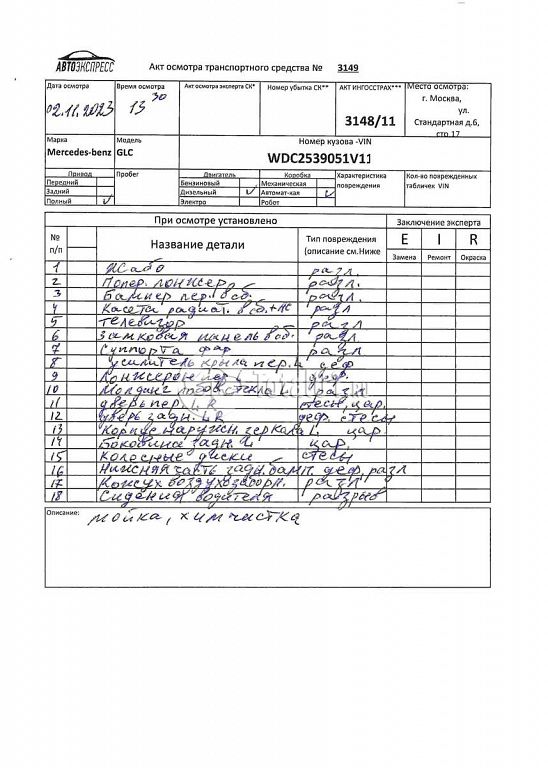 АВТОЭКСПРЕСС
Акт осмотра транспортного средства № 3149
Дата осмотра
02.11.2023
Время осмотра
13 30
Акт осмотра эксперта СК*
Номер убытка СК**
АКТ ИНГОССТРАХ***
3148/11
Место осмотра:
г. Москва,
ул.
Стандартная д.6,
стр.17
Марка
Mercedes-benz
Модель
GLC
Номер кузова -VIN
WDC2539051V11
Привод
Передний
Задний
Полный V
Пробег
Двигатель
Бензиновый
Дизельный V
Электро
Коробка
Механическая
Автомат-кая V
Робот
Характеристика
повреждения
Кол-во поврежденных
табличек VIN
При осмотре установлено
Заключение эксперта
№
п/п
Название детали
Тип повреждения
(описание см.Ниже
E I R
Замена Ремонт Окраска
1 Жабо разл.
2 Попер. лонжер. разл.
3 Бампер пер. в сб. разл.
4 Касета радиат. в сб. + АС разл
5 телевизор разл
6 Замковая панель в сб. разл.
7 Суппорта фар разл
8 усилитель крыла пер. деф
9 Лонжерон пер. L деф.
10 Молдинг стекла L разл
11 дверь пер. L R тесы, цар.
12 дверь задн. L R деф. стесы
13 Корпус наружн. зеркала L цар
14 Боковина задн. L цар.
15 Колосные диски стесы
16 Нижняя часть задн. бамп. деф. разл
17 Кожух воздухозаборн. разл
18 Сидения водителя разрыв
Описание:
мойка, химчистка